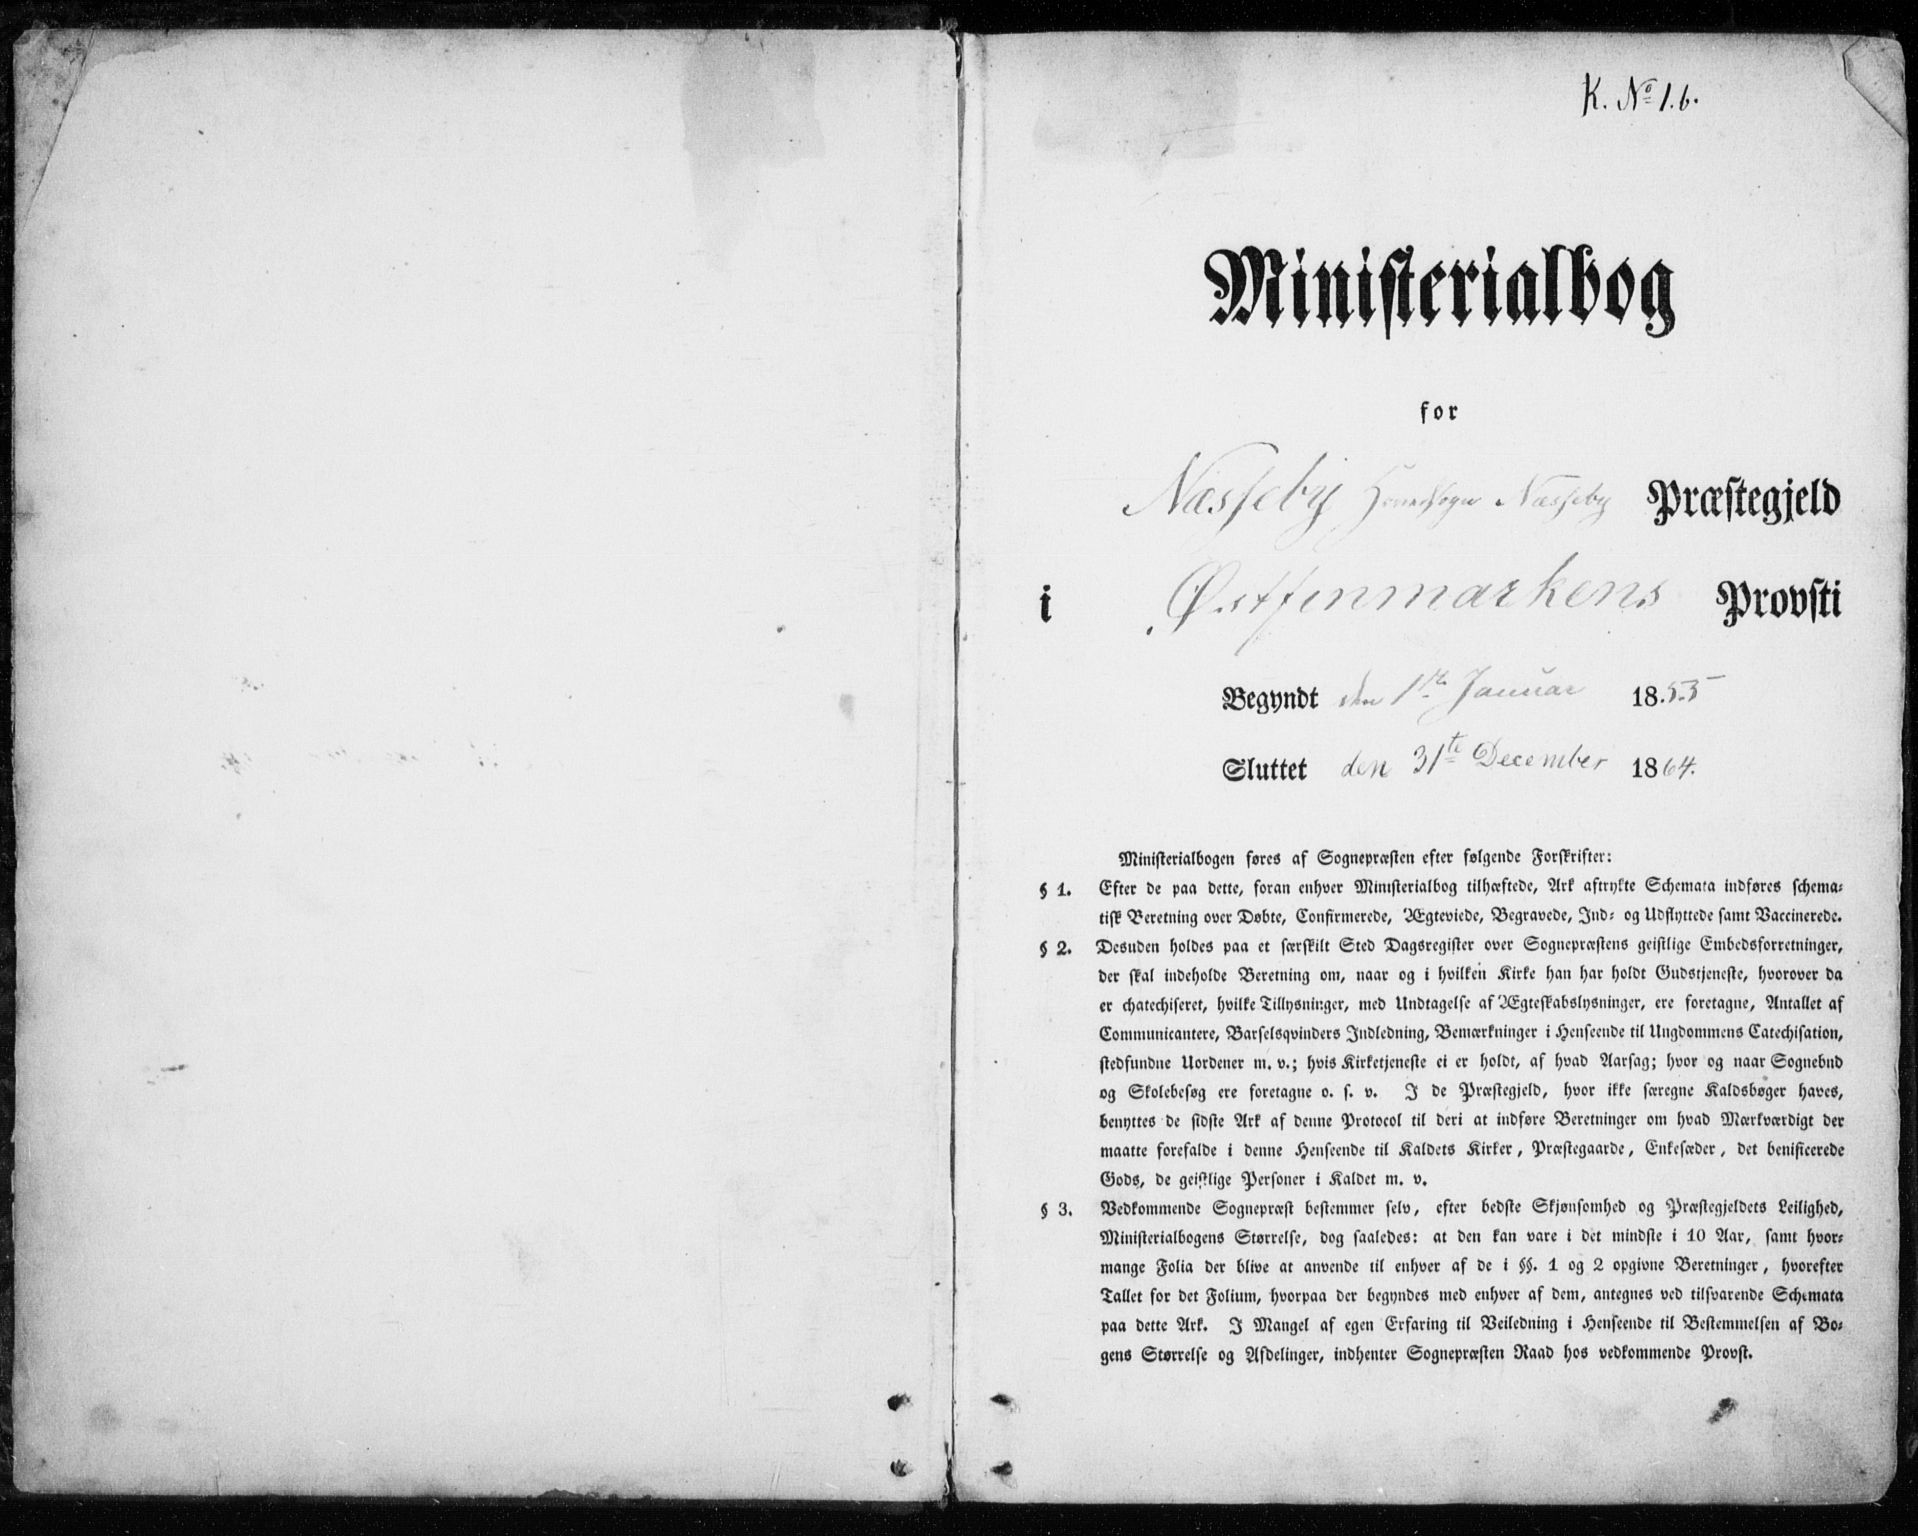 K. No 1.b.
Ministerialbog
for
Næsseby Hovedsogn Næsseby Præstegjeld
i Østfinmarkens Provsti
Begyndt den 1te Januar 1855
Sluttet den 31te December 1864.
Ministerialbogen føres af Sognepræsten efter følgende Forskrifter:
§ 1. Efter de paa dette, foran enhver Ministerialbog tilhæftede, Ark aftrykte Schemata indføres schema-
tisk Beretning over Døbte, Confirmerede, Ægteviede, Begravede, Ind- og Udflyttede samt Vaccinerede.
§ 2. Desuden holdes paa et særskilt Sted Dagsregister over Sognepræstens geistlige Embedsforretninger,
der skal indeholde Beretning om, naar og i hvilken Kirke han har holdt Gudstjeneste, hvorover da
er chatechiseret, hvilke Tillysninger, med Undtagelse af Ægteskabslysninger, ere foretagne, Antallet af
Communicantere, Barselsqvinders Indledning, Bemærkninger i Henseende til Ungdommens Catechisation,
stedfundne Uordener m. v.; hvis Kirketjeneste ei er holdt, af hvad Aarsag; hvor og naar Sognebud
og Skolebesøg ere foretagne o. s. v. I de Præstegjeld, hvor ikke særegne Kaldsbøger haves,
benyttes de sidste Ark af denne Protocol til deri at indføre Beretninger om hvad Mærkværdigt der
maatte forefalde i denne Henseende til Kaldets Kirker, Præstegaarde, Enkesæder, det benificerede
Gods, de geistlige Personer i Kaldet m. v.
§ 3. Vedkommende Sognepræst bestemmer selv, efter bedste Skjønsomhed og Præstegjeldets Leilighed,
Ministerialbogens Størrelse, dog saaledes: at den kan vare i det mindste i 10 Aar, samt hvor-
mange Folia der blive at anvende til enhver af de i §§. 1 og 2 opgivne Beretninger, hvorefter
Tallet for det Folium, hvorpaa der begyndes med enhver af dem, antegnes ved tilsvarende Schemata
paa dette Ark. I Mangel af egen Erfaring til Veiledning i Henseende til Bestemmelsen af Bo-
gens Størrelse og Afdelinger, indhenter Sognepræsten Raad hos vedkommende Provst.